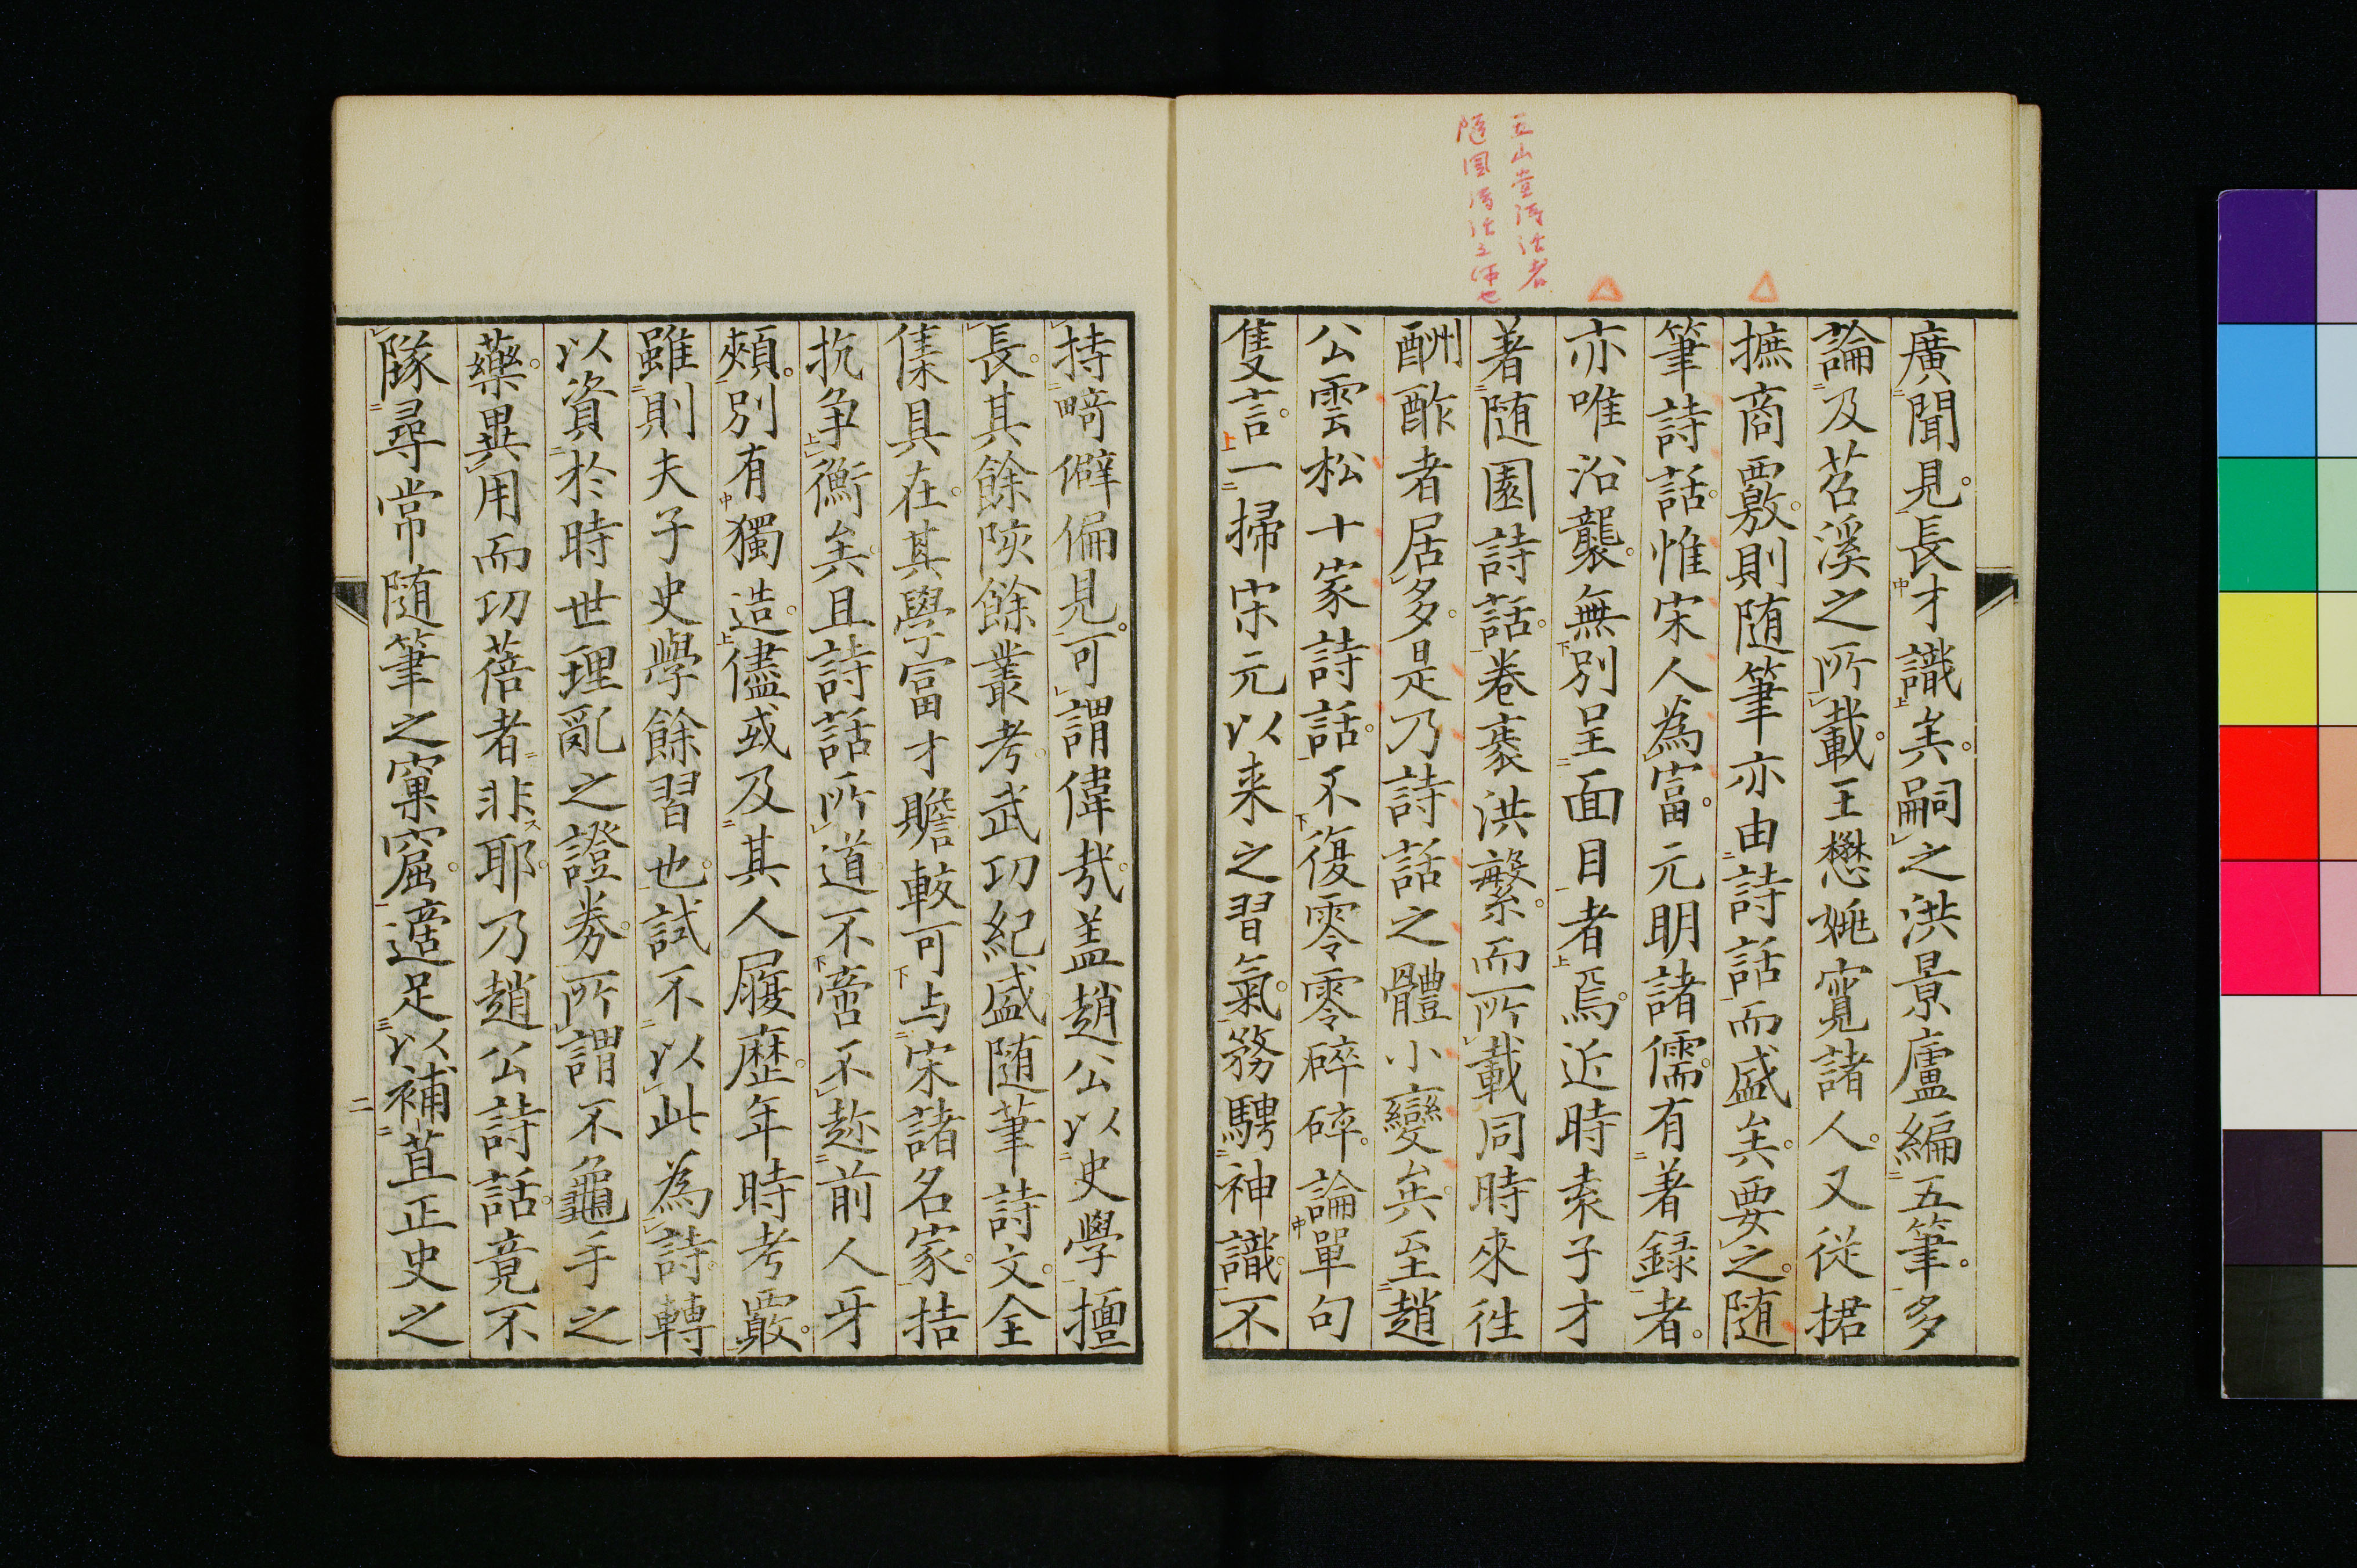 五山堂詩話者
隨園詩話之係也
廣聞見。長才識矣。嗣之洪景廬編五筆。多
論及苕溪之所載。王楙姚寬諸人。又從捃
摭商覈。則随筆亦由詩話而盛矣。要之。随
筆詩話。惟宋人為富。元明諸儒。有著録者。
亦唯沿襲。無別呈面目者焉。近時袁子才
著随園詩話。卷袠洪繁。而所載同時來徃
酬酢者居多。是乃詩話之體小變矣。至趙
公雲松十家詩話。不復零零碎碎。論單句
隻言。一掃宋元以来之習氣。務騁神識。不
持畸僻偏見。可謂偉哉。盖趙公以史學擅
長。其餘陔餘叢考。武功紀盛随筆詩文。全
集具在。其學富才贍。較可与宋諸名家。拮
抗争衡矣。且詩話所道。不啻不趂前人牙
頰。別有獨造。儘或及其人履歴。年時考覈。
雖則夫子史學餘習也。試不以此為詩。轉
以資於時世理亂之證券。所謂不龜手之
藥。異用而功蓓者非耶。乃趙公詩話。竟不
隊尋常随筆之窠窟。適足以補苴正史之
二